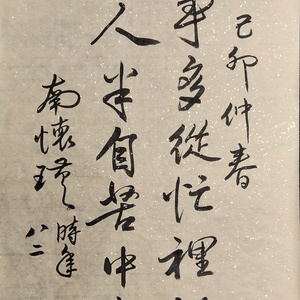 己卯仲春
事多從忙裡
人半自苦中
南懷瑾
時年
八二